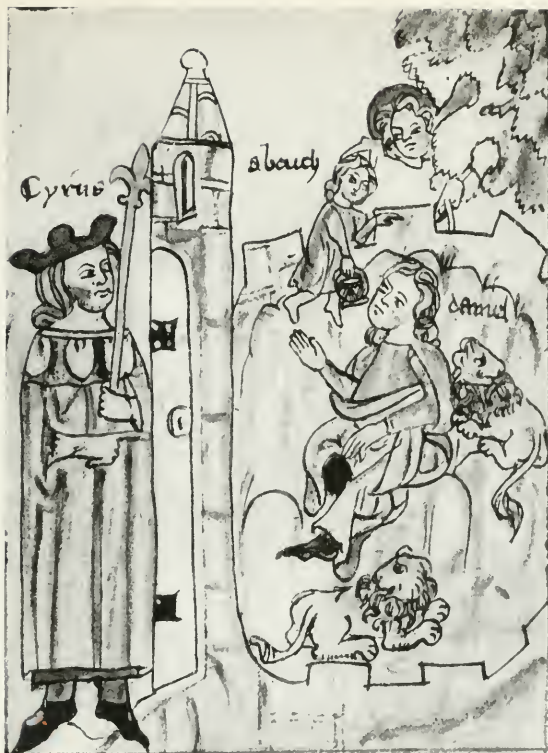 Cyrus
abacuch
daniel